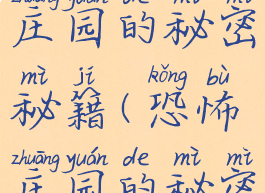 zhuāng yuán de mì mì
庄园的秘密
mì jí kǒng bù
秘籍(恐怖
zhuāng yuán de mì mì
庄园的秘密